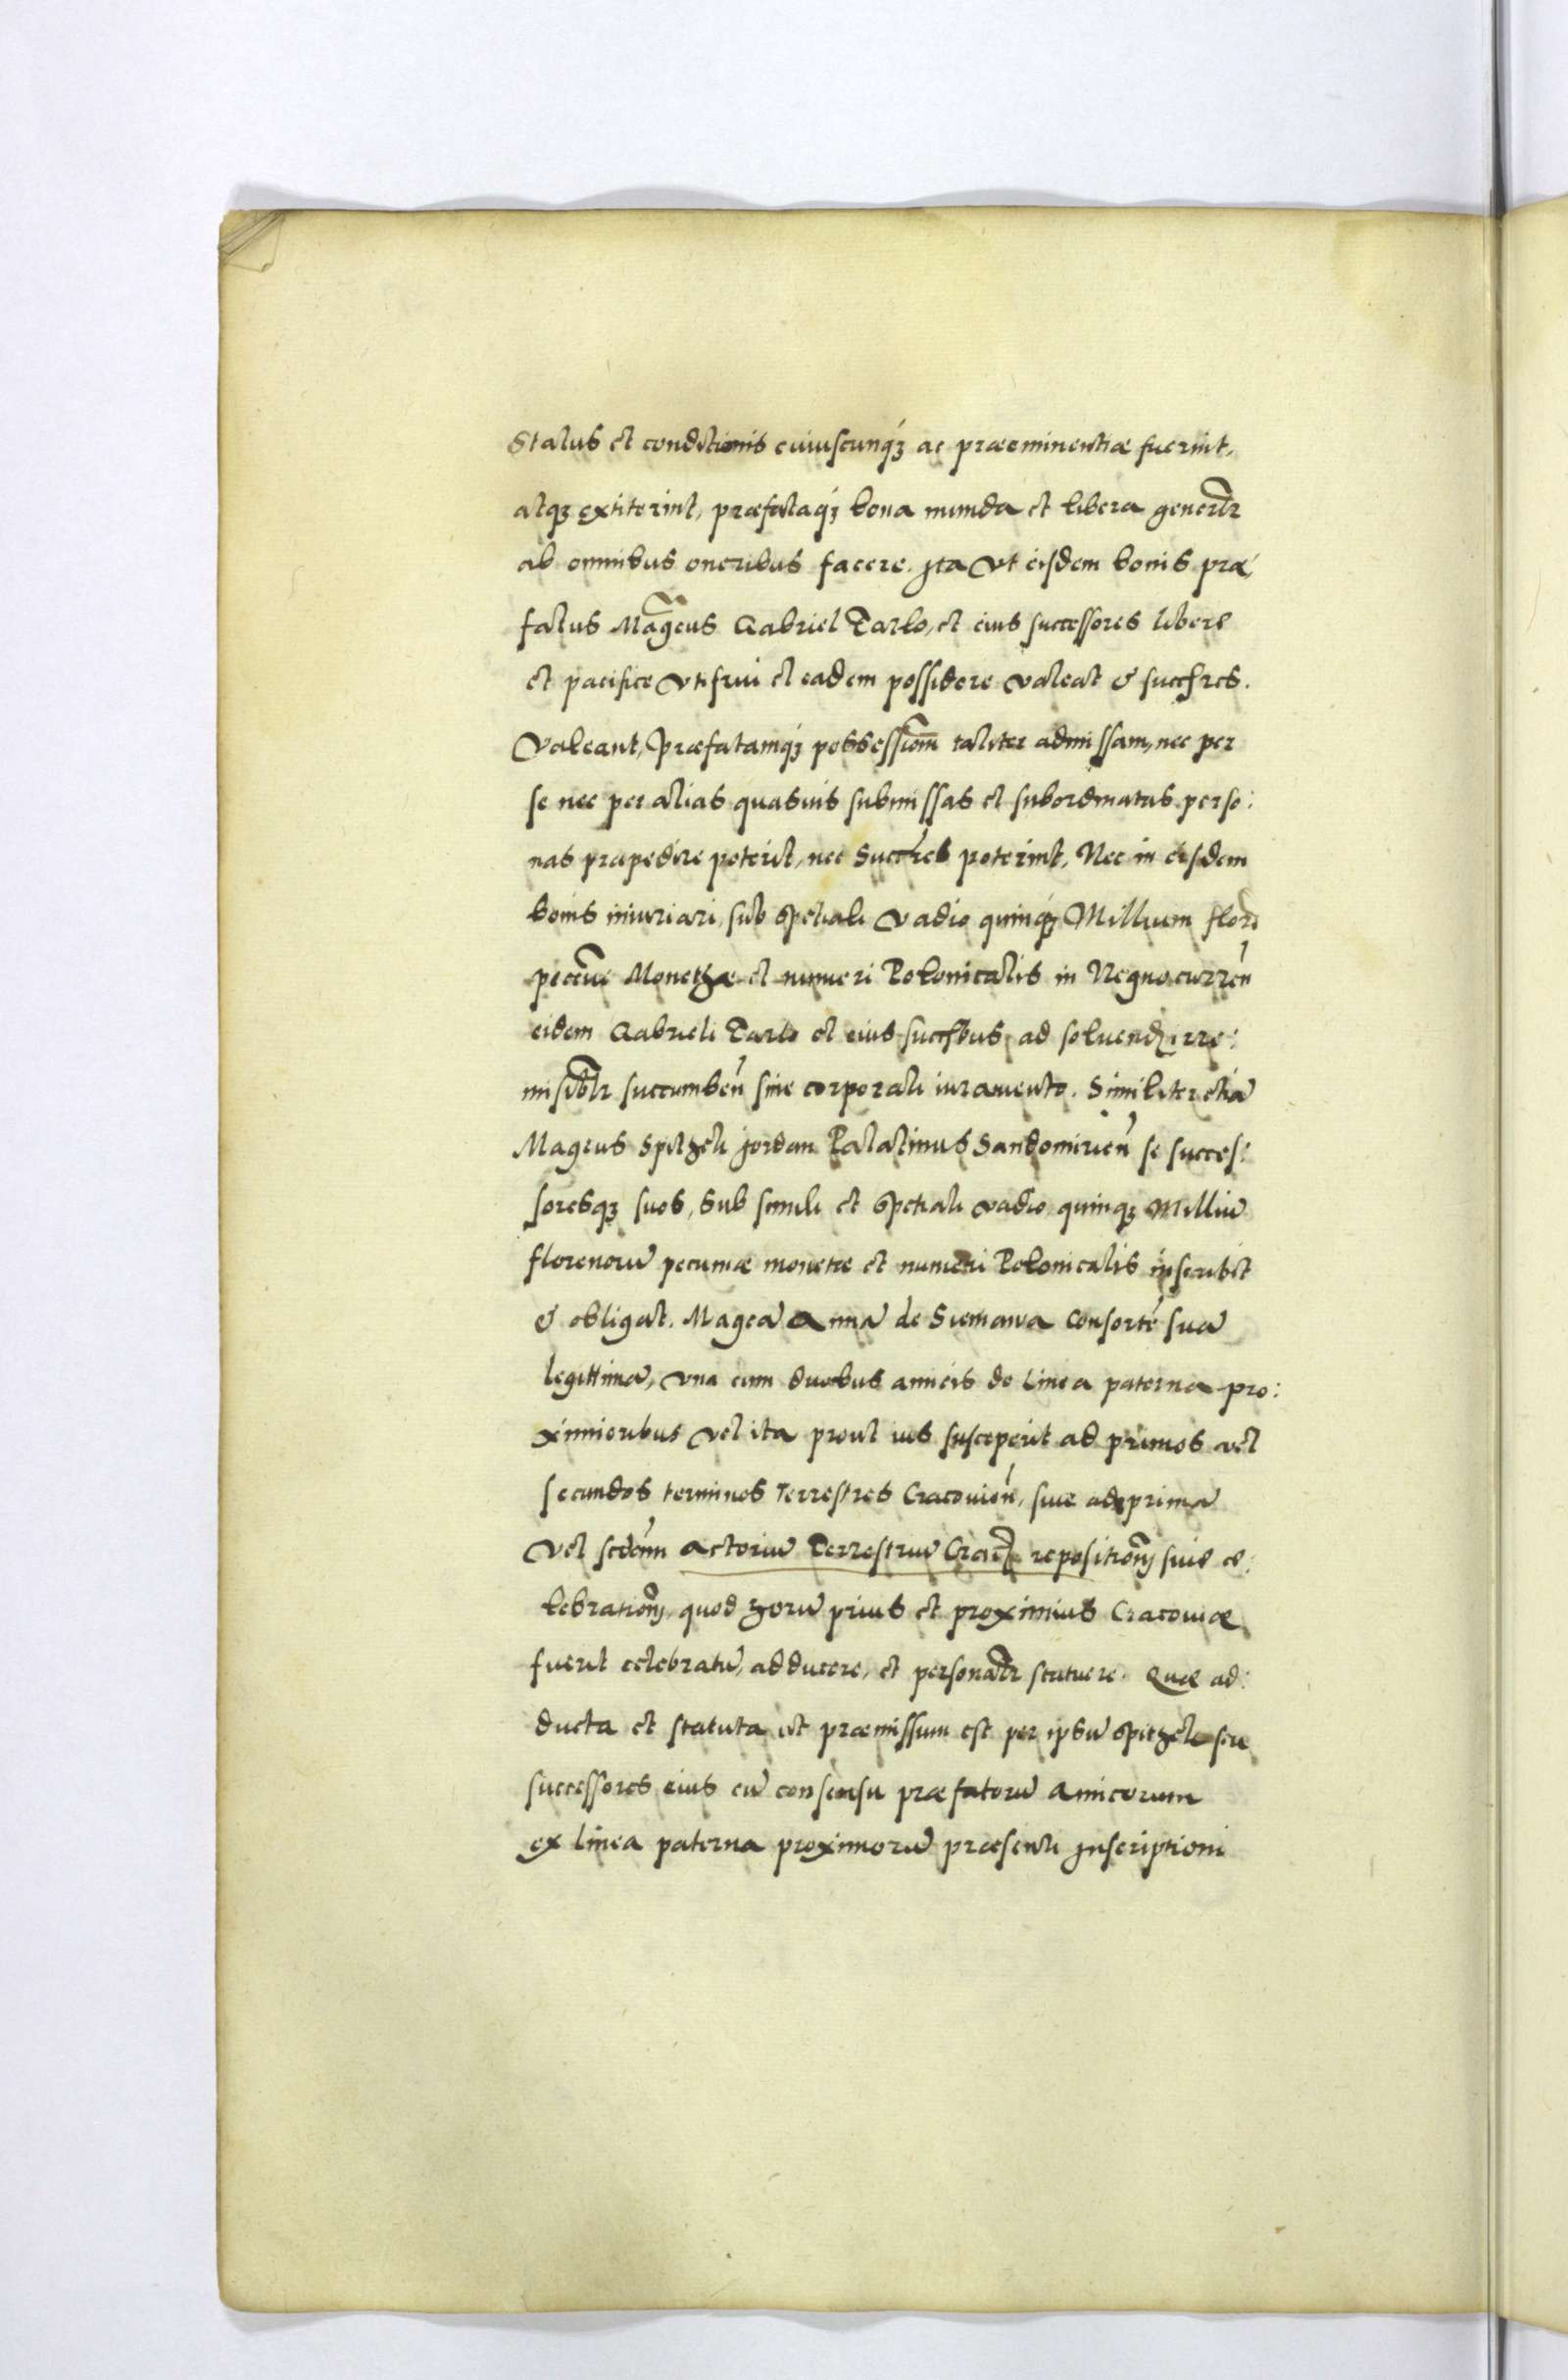 Status et conditionis cuiuscunq₃ ac præeminentiæ fuerint,
atq₃ extiterint, præfataq₃ bona munda et libera generlr
ab omnibus oneribus facere. Jta vt eisdem bonis præ
fatus Magcus Gabriel Tarlo, et eius successores libere
et pacifice vti frui et eadem possidere valeat & succsres.
Valeant, Præfatamq₃ possessionm taliter admissam, nec per
se nec per alias quasuis submissas et subordinatas perso:
nas præpedire poterit, nec Succsres poterint, Nec in eisdem
bonis iniuriari, sub spetiali vadio quinq₃ Millium flor
pecune Monethæ et numeri Polonicalis in Regno curren
eidem Gabrieli Tarlo et eius succsbus ad soluend irre:
misiblr succumben sine corporali iuramento. Similiter etiā
Magcus Spitheli Jordan Palatinus Sandomirien se succes:
soresq₃ suos, sub simili et spetiali vadio quinq₃ Milliū
florenorū pecuniæ monetæ et numeri Polonicalis inscribit
& obligat. Magcā Annā de Sieniawa Consortē suā
legittimā, vna cum duobus amicis de linea paterna pro:
ximioribus vel ita prout ius susceperit ad primos vel
secundos terminos Terrestres Cracouien, siue ad primā
Vel secdam actorū Terrestriū Crac repositionj siue ce:
lebrationj, quod horū prius et proximius Cracouiæ
fuerit celebratū, adducere, et personalr statuere. Quæ ad:
ducta et statuta ut præmissum est per ipsū Spitheli seu
successores eius cū consensu præfatorū Amicorum
ex linea paterna proximorū præsenti Jnscriptioni